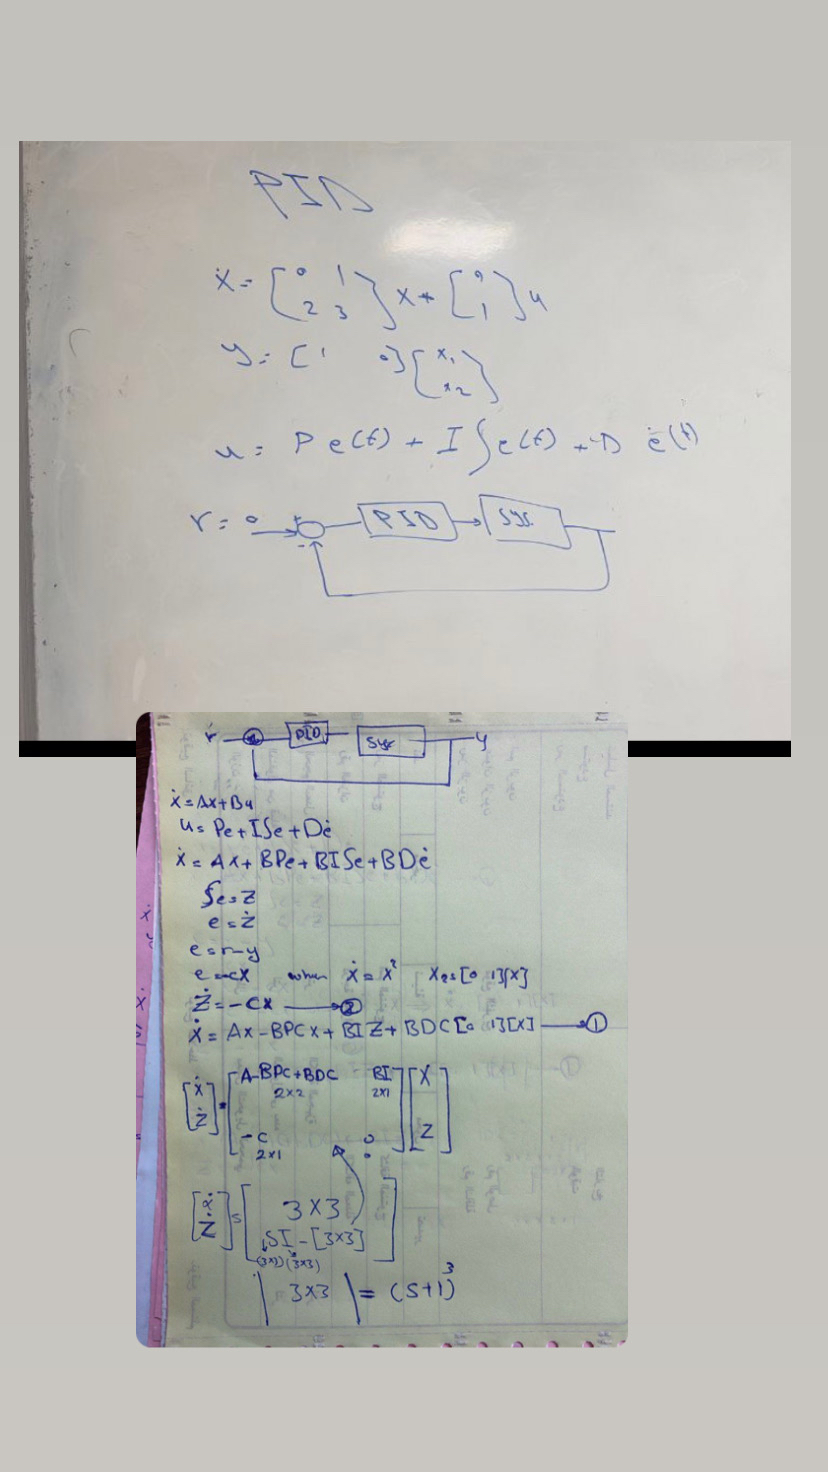 PID
ẋ = [0 1 2 3] x + [0 1] u
y = [1 0] [x₁ x₂]
u = P e(t) + I ∫e(t) + D ė(t)
r = 0 + - PID sys
r PID sys y
ẋ = Ax + Bu
u = Pe + I∫e + Dė
ẋ = Ax + BPe + BI∫e + BDė
∫e = z
e = ż
e = r - y
e = -cx when ẋ = x² x₂ = [0 1][x]
ż = -cx → ②
ẋ = Ax - BPCx + BIZ + BDC[0 1][x] → ①
[ẋ ż] = [A-BPC+BDC BI] [x
2×2 2×1
-C 0 z]
2×1 0
[ẋ ż] = [3×3
SI - [3×3]]
(3×3) (3×3)
| 3×3 | = (S+1)³